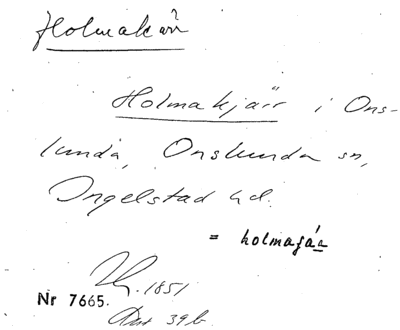 Holmakärr
Holmakjärr i Ons-
lunda, Onslunda sn,
Ingelstad hd.
= holmagáa
1851
Nr 7665.
39 b